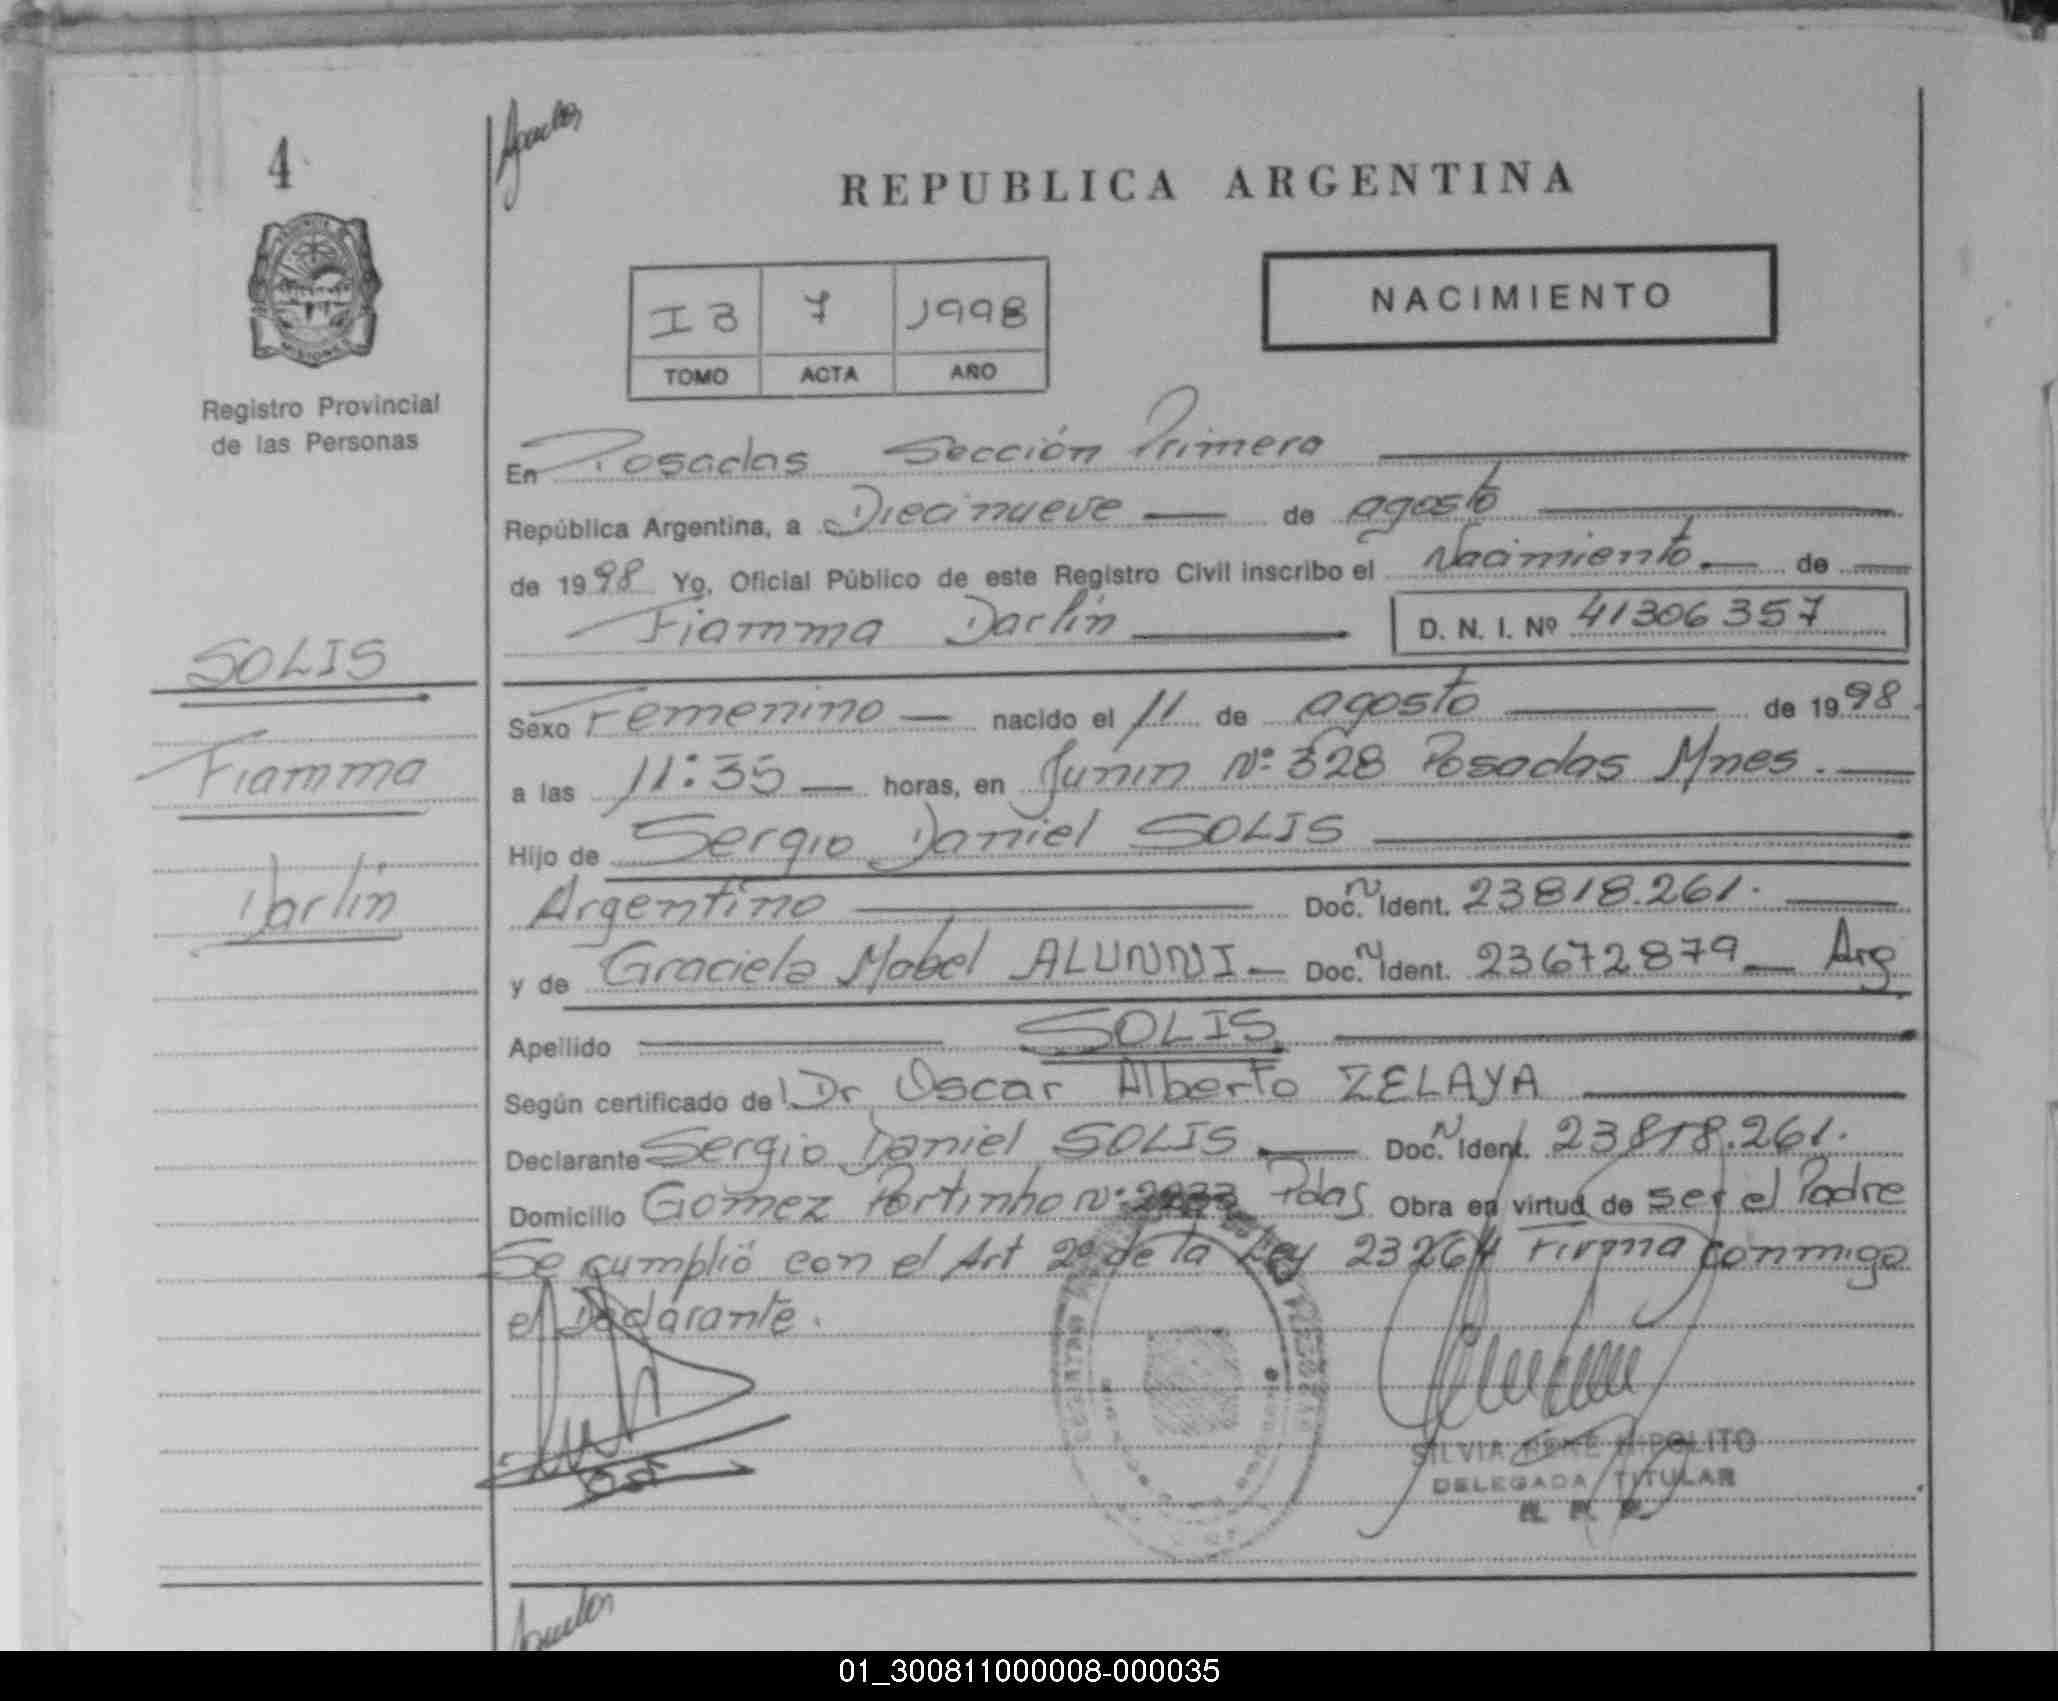 4
REPUBLICA ARGENTINA
NACIMIENTO
I B 7 1998
TOMO ACTA AÑO
Registro Provincial
de las Personas
En Posadas Sección Primera
República Argentina, a Diecinueve de agosto
de 1998 Yo, Oficial Público de este Registro Civil inscribo el Nacimiento de
Fiamma Darlin D. N. I. Nº 41306357
SOLIS
Fiamma
Darlin
Sexo Femenino nacido el 11 de agosto de 1998
a las 11:35 horas, en Junin Nº 328 Posadas Mnes.
Hijo de Sergio Daniel SOLIS
Argentino Doc. N Ident. 23818.261.
y de Graciela Mabel ALUNNI Doc. N Ident. 23672879 Arg
Apellido SOLIS
Según certificado de Dr Oscar Alberto ZELAYA
Declarante Sergio Daniel SOLIS Doc. N Ident. 23818.261.
Domicilio Gomez Portinho Nº Pdas Obra en virtud de ser el Padre
Se cumplió con el Art 2º de la Ley 23264 Firma conmigo
el Declarante.
SILVIA HIPOLITO
DELEGADA TITULAR
01_300811000008-000035